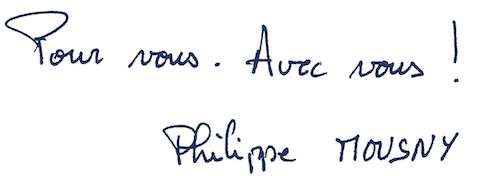 Pour vous. Avec vous !
Philippe MOUSNY